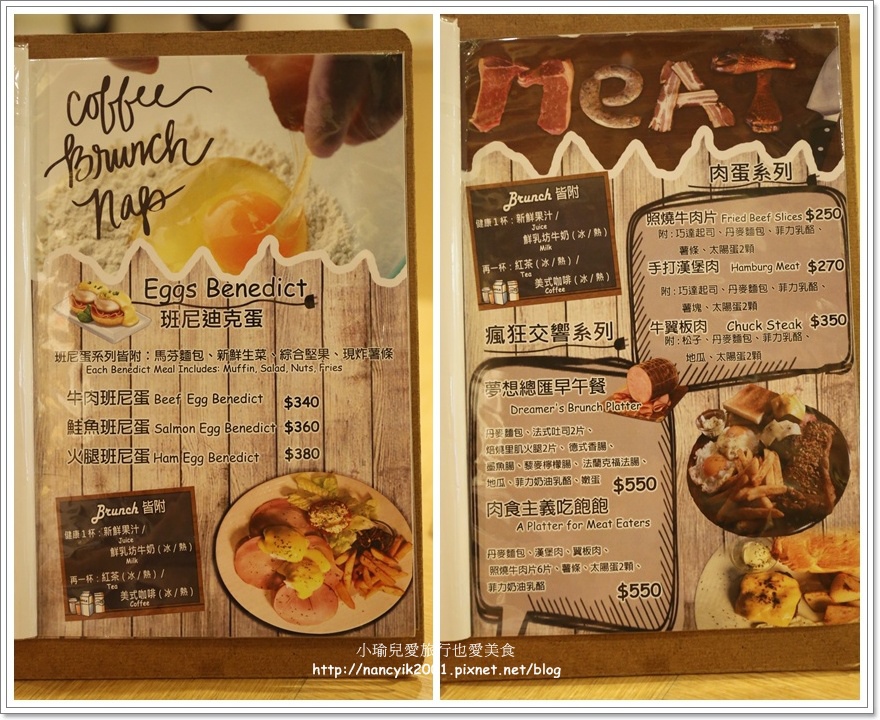 Coffee
Brunch
Nap
Eggs Benedict
班尼迪克蛋
班尼蛋系列皆附：馬芬麵包、新鮮生菜、綜合堅果、現炸薯條
Each Benedict Meal Includes: Muffin, Salad, Nuts, Fries
牛肉班尼蛋 Beef Egg Benedict $340
鮭魚班尼蛋 Salmon Egg Benedict $360
火腿班尼蛋 Ham Egg Benedict $380
Brunch 皆附
健康1杯：新鮮果汁 /
Juice
鮮乳坊牛奶 ( 冰 / 熱 )
Milk
再一杯：紅茶 ( 冰 / 熱 ) /
Tea
美式咖啡 ( 冰 / 熱 )
Coffee
MeAT
肉蛋系列
Brunch 皆附
健康1杯：新鮮果汁 /
Juice
鮮乳坊牛奶 ( 冰 / 熱 )
Milk
再一杯：紅茶 ( 冰 / 熱 ) /
Tea
美式咖啡 ( 冰 / 熱 )
Coffee
照燒牛肉片 Fried Beef Slices $250
附：巧達起司、丹麥麵包、菲力乳酪、
薯條、太陽蛋2顆
手打漢堡肉 Hamburg Meat $270
附：巧達起司、丹麥麵包、菲力乳酪、
薯塊、太陽蛋2顆
牛翼板肉 Chuck Steak $350
附：松子、丹麥麵包、菲力乳酪、
地瓜、太陽蛋2顆
瘋狂交響系列
夢想總匯早午餐
Dreamer's Brunch Platter
丹麥麵包、法式吐司2片、
焙燒里肌火腿2片、德式香腸、
墨魚腸、藜麥檸檬腸、法蘭克福法腸、
地瓜、菲力奶油乳酪、嫩蛋 $550
肉食主義吃飽飽
A Platter for Meat Eaters
丹麥麵包、漢堡肉、翼板肉、
照燒牛肉片6片、薯條、太陽蛋2顆、
菲力奶油乳酪 $550
小瑜兒愛旅行也愛美食
http://nancyik2001.pixnet.net/blog